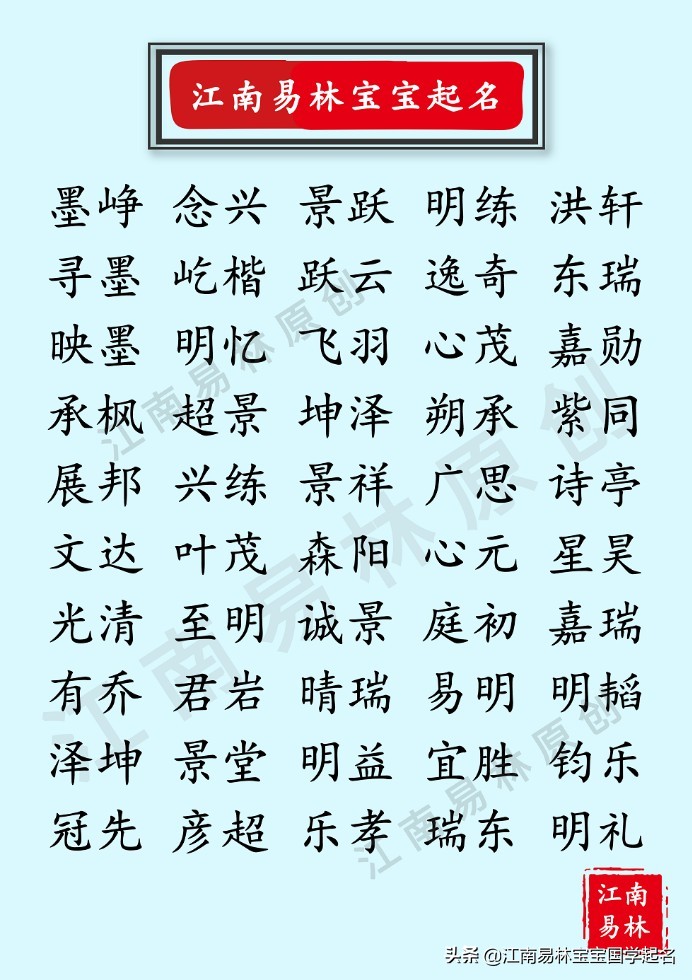 江南易林宝宝起名
墨峥 念兴 景跃 明练 洪轩
寻墨 屹楷 跃云 逸奇 东瑞
映墨 明忆 飞羽 心茂 嘉勋
承枫 超景 坤泽 朔承 紫同
展邦 兴练 景祥 广思 诗亭
文达 叶茂 森阳 心元 星昊
光清 至明 诚景 庭初 嘉瑞
有乔 君岩 晴瑞 易明 明韬
泽坤 景堂 明益 宜胜 钧乐
冠先 彦超 乐孝 瑞东 明礼
江南易林原创
江南易林原创
江南易林原创
江南
易林
头条 @江南易林宝宝国学起名